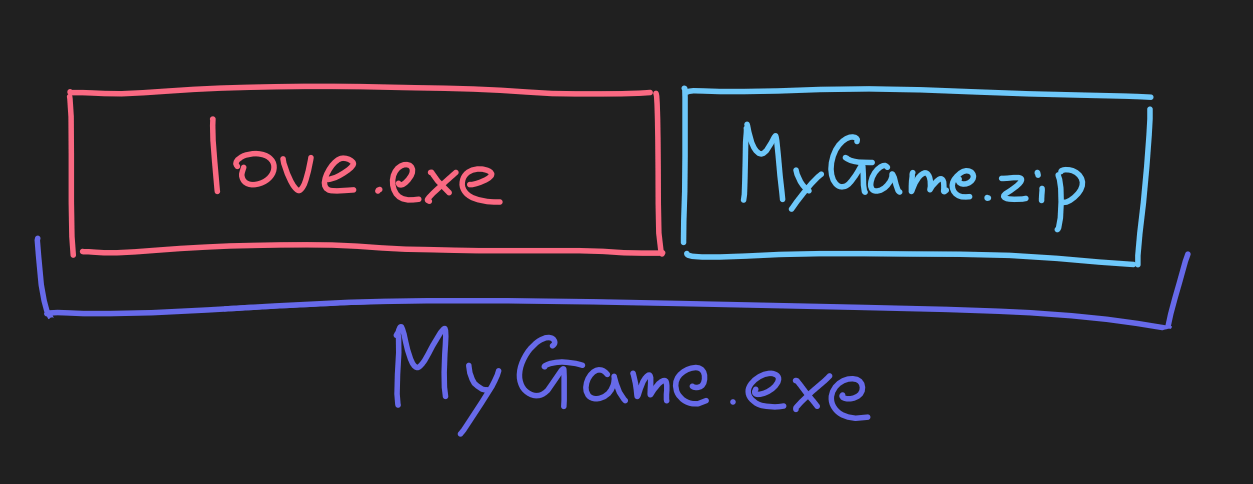 love.exe
MyGame.zip
MyGame.exe